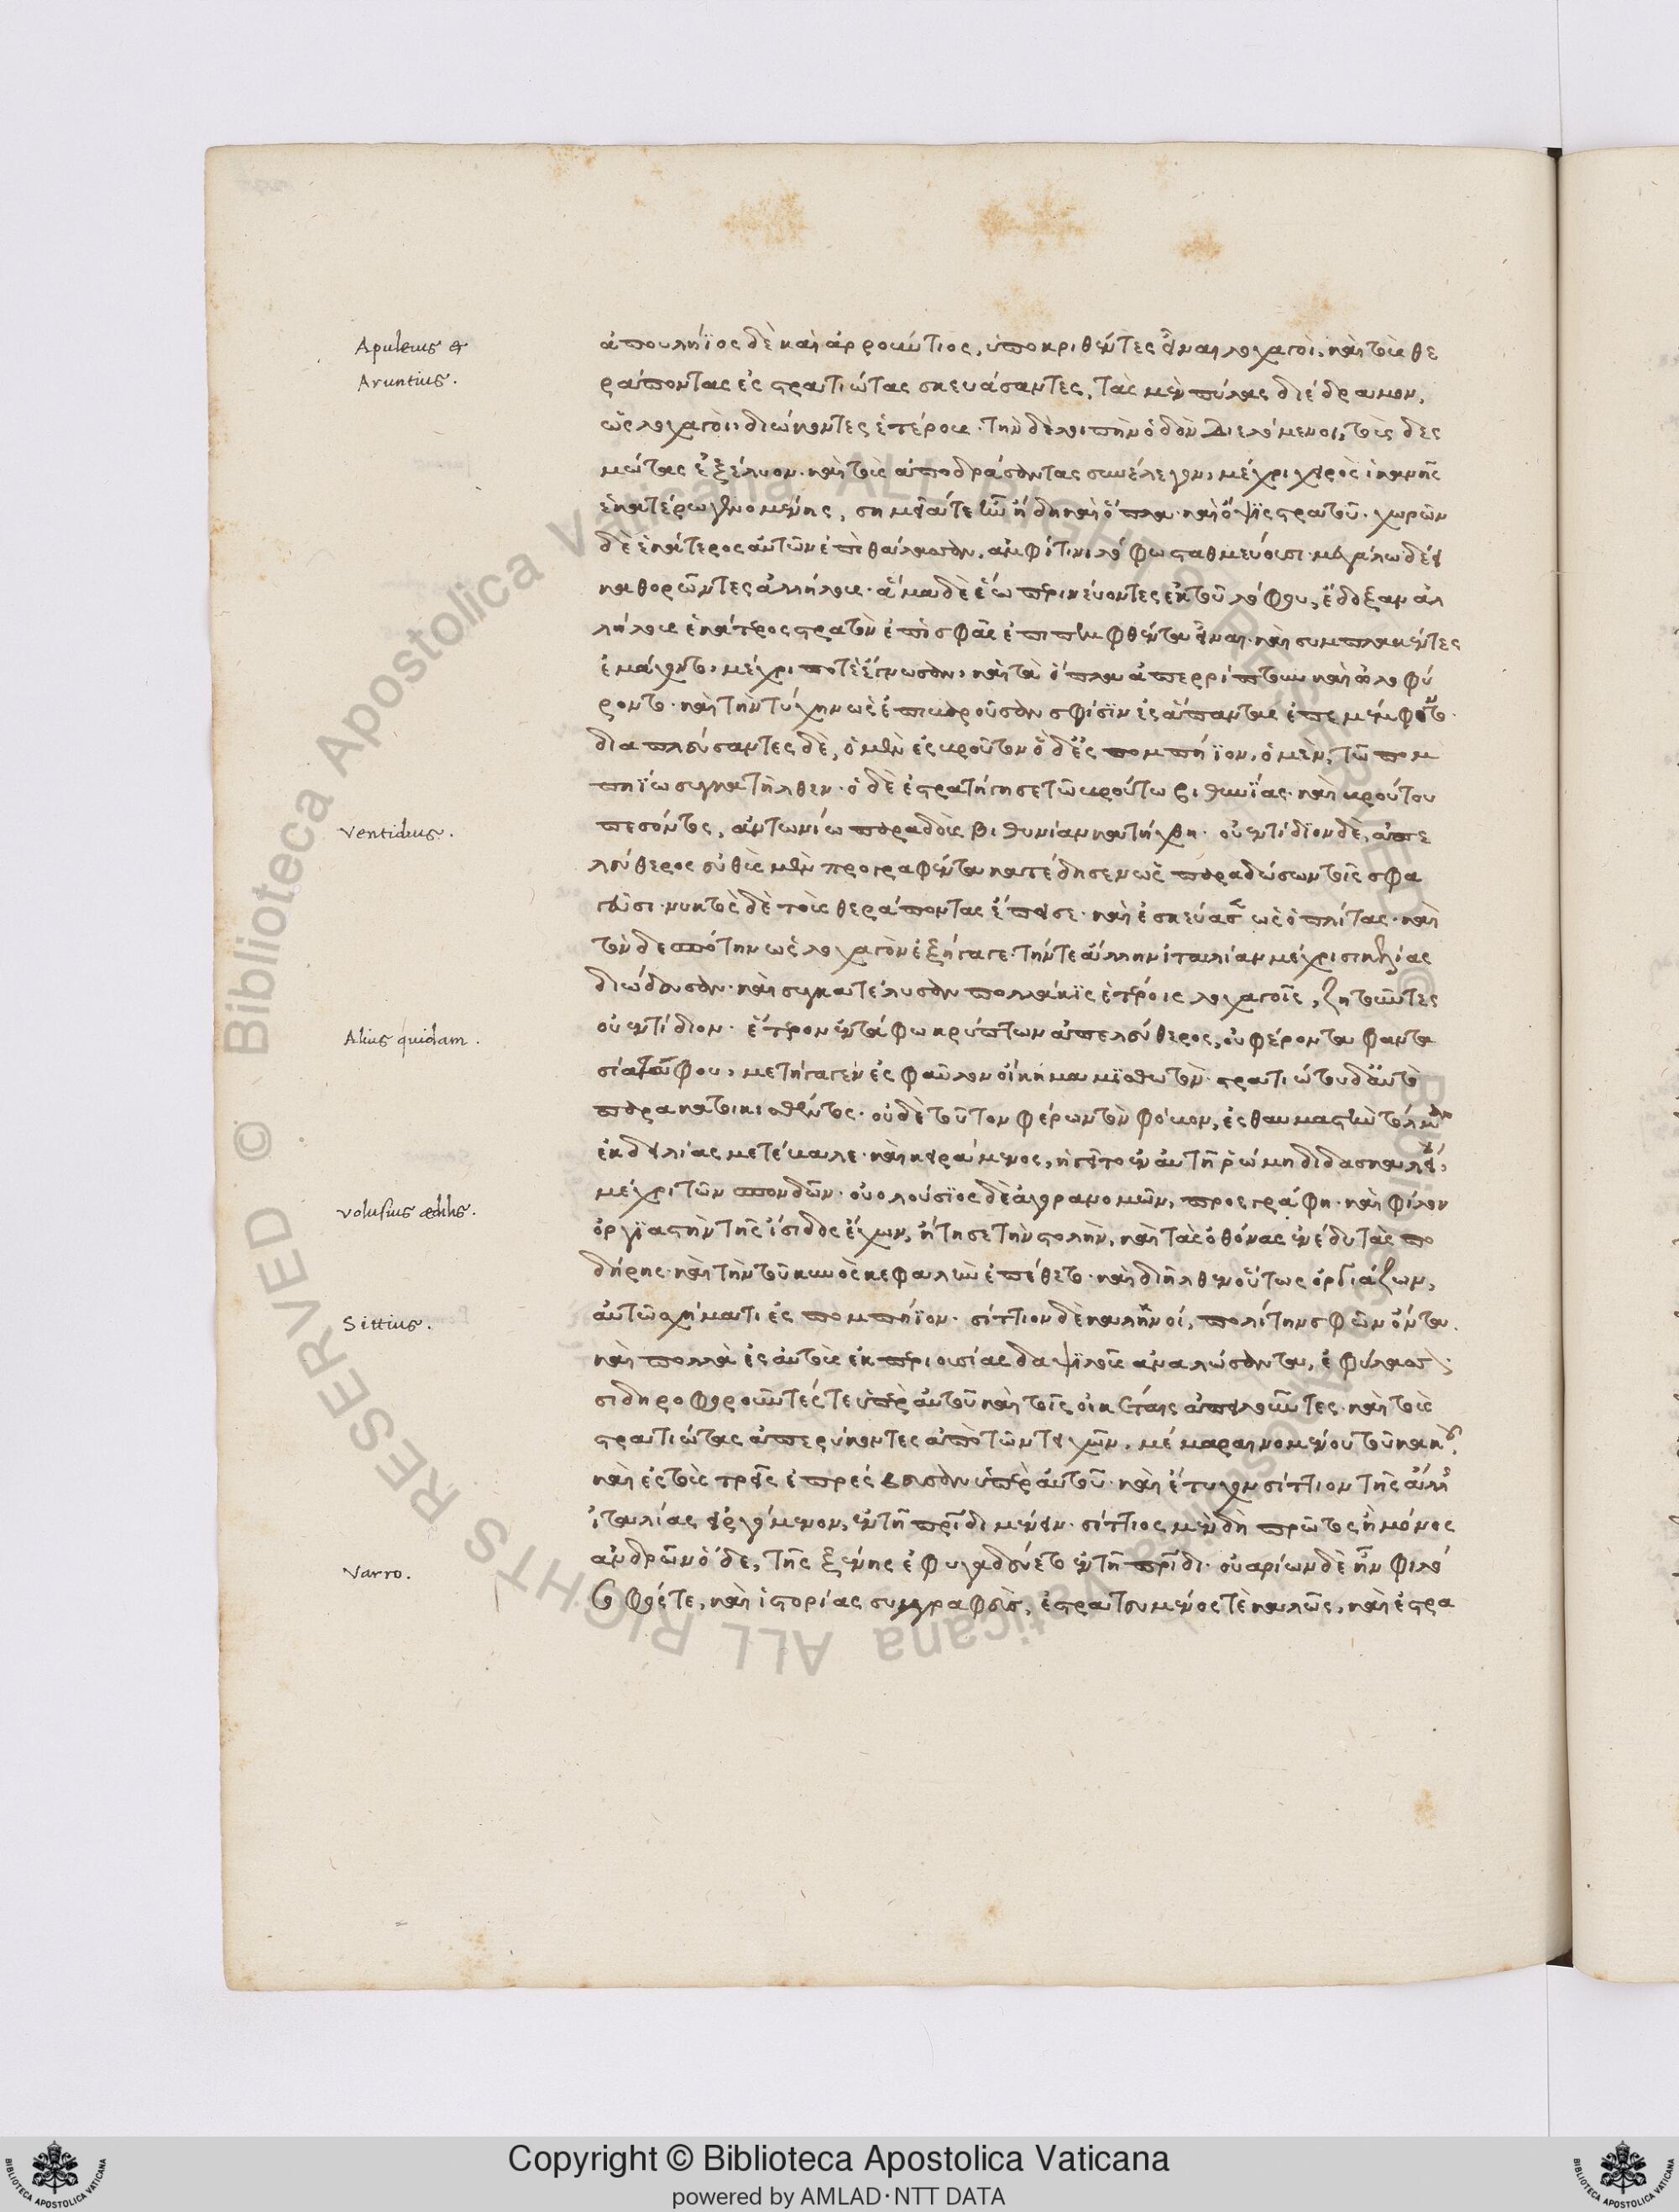 Apuleius &
Aruntius.
ἀπουλήϊος δὲ καὶ ἀρρούντιος, ὑποκριθέντες εἶναι λοχαγοὶ, καὶ τοὺς θε
ράποντας ἐς στρατιώτας σκευάσαντες, τὰς μὲν πύλας διέδραμον,
ὡς λοχαγοὶ διώκοντες ἑτέρους· τὴν δὲ λοιπὴν ὁδὸν διελόμενοι, τοὺς δεσ
μώτας ἐξέλυον· καὶ τοὺς ἀποδράσαντας συνέλεγον, μέχρι χειρὸς ἱκανῆς
ἑκατέρω γενομένης, σημεῖά τε ἦν ἤδη καὶ ὅπλα· καὶ ὄψις στρατοῦ· χωρῶν
δὲ ἑκάτερος αὐτῶν ἐπὶ θάλασσαν, ἀμφί τινι λόφω σταθμεύουσι μεγάλω δέει
καθορῶντες ἀλλήλους· ἅμα δὲ ἕω περινεύοντες ἐκ τοῦ λόφου, ἔδοξαν ἀλ
λήλους ἑκάτερος στρατὸν ἐπὶ σφᾶς ἐπιπεμφθέντα εἶναι· καὶ συμπλακέντες
ἐμάχοντο, μέχρι ποτὲ ἔγνωσαν, καὶ τὰ ὅπλα ἀπερρίπτουν καὶ ὠλοφύ
ροντο· καὶ τὴν τύχην ὡς ἐπικυροῦσαν σφίσϊν ἐς ἅπαντας ἐπεμέμφοντο·
διαπλεύσαντες δὲ, ὁ μὲν ἐς βροῦτον ὁ δ' ἐς πομπήϊον, ὁ μὲν, τῶ πομ
πηΐω συγκατῆλθεν· ὁ δὲ ἐστρατήγησε τῶ βρούτω βιθυνΐας· καὶ βρούτου
Ventidius.
πεσόντος, ἀντωνίω παραδοὺς βιθυνίαν κατήχθη· οὐεντίδϊον δὲ, ἀπε
λεύθερος εὐθὺς μὲν προγραφέντα κατέδησεν ὡς παραδώσων τοῖς σφα
γεῦσι· νυκτὸς δὲ τοὺς θεράποντας ἔπεισε· καὶ ἐσκεύασεν ὡς ὁπλίτας· καὶ
τὸν δεσπότην ὡς λοχαγὸν ἐξήγαγε· τήν τε ἄλλην ἰταλίαν μέχρι σικελίας
διώδευσαν· καὶ συγκατέλυσαν πολλάκϊς ἑτέροις λοχαγοῖς, ζητοῦντες
Alius quidam.
οὐεντίδιον· ἕτερον ἐν τάφω κρύπτων ἀπελεύθερος, οὐ φέροντα φαντα
σίαν τάφου, μετήγαγεν ἐς φαῦλον οἴκημα μϊσθωτὸν· στρατιώτου δ' αὐτῶ
παρακατοικισθέντος· οὐδὲ τοῦτον φέρων τὸν φόβον, ἐς θαυμαστὴν τόλμαν
ἐκ δειλίας μετέβαλε· καὶ κειράμενος, ἡγεῖτο ἐν αὐτῆ ῥώμη διδασκαλείου,
Volusius aedilis.
μέχρι τῶν σπονδῶν· οὐολούσϊος δὲ ἀγορανομῶν, προεγράφη· καὶ φίλον
ὀργϊαστὴν τῆς ἴσιδος ἔχων, ἤτησε τὴν στολὴν, καὶ τὰς ὀθόνας ἐνέδυ τὰς πο
δήρης· καὶ τὴν τοῦ κυνὸς κεφαλὴν ἐπέθετο· καὶ διῆλθεν οὕτως ὀργιάζων,
Sittius.
αὐτῶ σχήματι ἐς πομπήϊον· σίττιον δὲ καληνοὶ, πολίτην σφῶν ὄντα.
καὶ πολλὰ ἐς αὐτοὺς ἐκ περιουσίας δαψϊλοῦς ἀναλώσαντα, ἐφύλασσον·
σιδηροφοροῦντές τε ὑπὲρ αὐτοῦ καὶ τοῖς οἰκέταις ἀπειλοῦντες· καὶ τοὺς
στρατιώτας ἀπερύκοντες ἀπὸ τῶν τειχῶν, μέχρι μαραινομένου τοῦ κακοῦ,
καὶ ἐς τοὺς τρεῖς ἐπρέσβευσαν ὑπὲρ αὐτοῦ· καὶ ἔτυχον σίττιον τῆς ἄλλης
ἰταλίας εἰργόμενον, ἐν τῆ πατρίδι μένειν· σίττιος μὲν δὴ πρῶτος ἢ μόνος
Varro.
ἀνδρῶν ὅδε, τῆς ξένης ἐφυγαδεύετο ἐν τῆ πατρίδι· οὐαρίων δὲ ἦν φιλό
σοφός τε, καὶ ἱστορίας συγγραφεὺς, ἐστρατευμένος τὲ καλῶς, καὶ ἐστρα
Copyright © Biblioteca Apostolica Vaticana
powered by AMLAD·NTT DATA